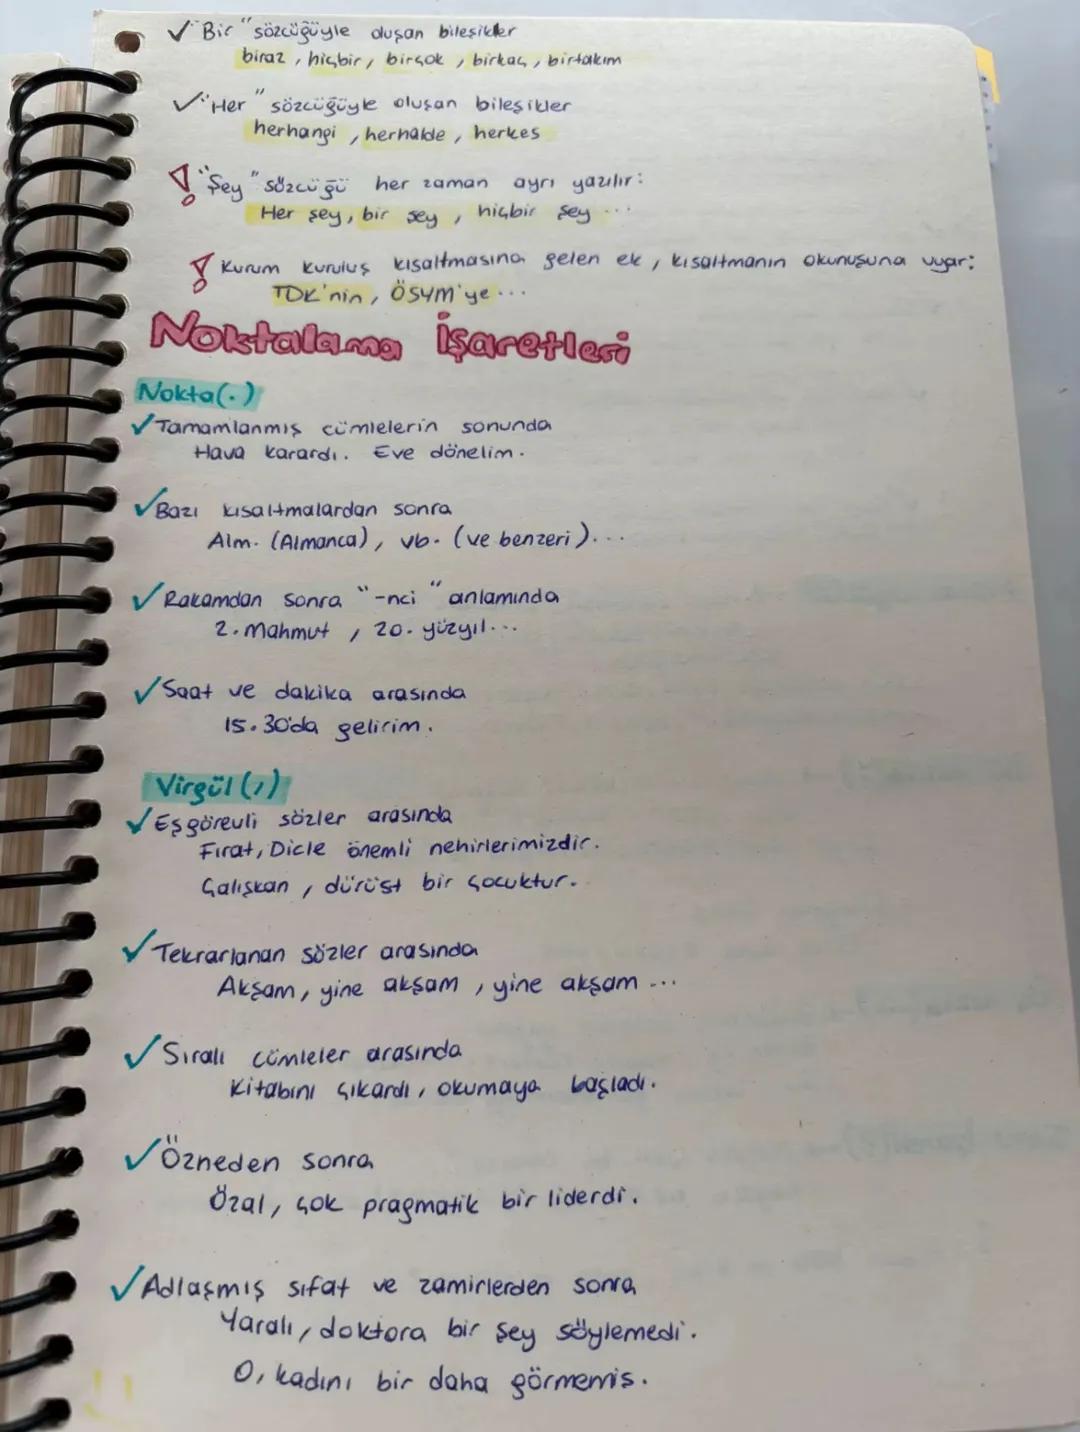 ✓ "Bir" sözcüğüyle oluşan bileşikler
biraz, hiçbir, birçok, birkaç, birtakım
✓ "Her" sözcüğüyle oluşan bileşikler
herhangi, herhalde, herkes
! "Şey" sözcüğü her zaman ayrı yazılır:
Her şey, bir şey, hiçbir şey ...
! Kurum kuruluş kısaltmasına gelen ek, kısaltmanın okunuşuna uyar:
TDK'nin, ÖSYM'ye ...
Noktalama İşaretleri
Nokta(.)
✓ Tamamlanmış cümlelerin sonunda
Hava karardı. Eve dönelim.
✓ Bazı kısaltmalardan sonra
Alm. (Almanca), vb. (ve benzeri)...
✓ Rakamdan sonra "-nci" anlamında
2. Mahmut, 20. yüzyıl...
✓ Saat ve dakika arasında
15.30'da gelirim.
Virgül (,)
✓ Eşgörevli sözler arasında
Fırat, Dicle önemli nehirlerimizdir.
Çalışkan, dürüst bir çocuktur.
✓ Tekrarlanan sözler arasında
Akşam, yine akşam, yine akşam ...
✓ Sıralı cümleler arasında
Kitabını çıkardı, okumaya başladı.
✓ Özneden sonra
Özal, çok pragmatik bir liderdi.
✓ Adlaşmış sıfat ve zamirlerden sonra
Yaralı, doktora bir şey söylemedi.
O, kadını bir daha görmemiş.